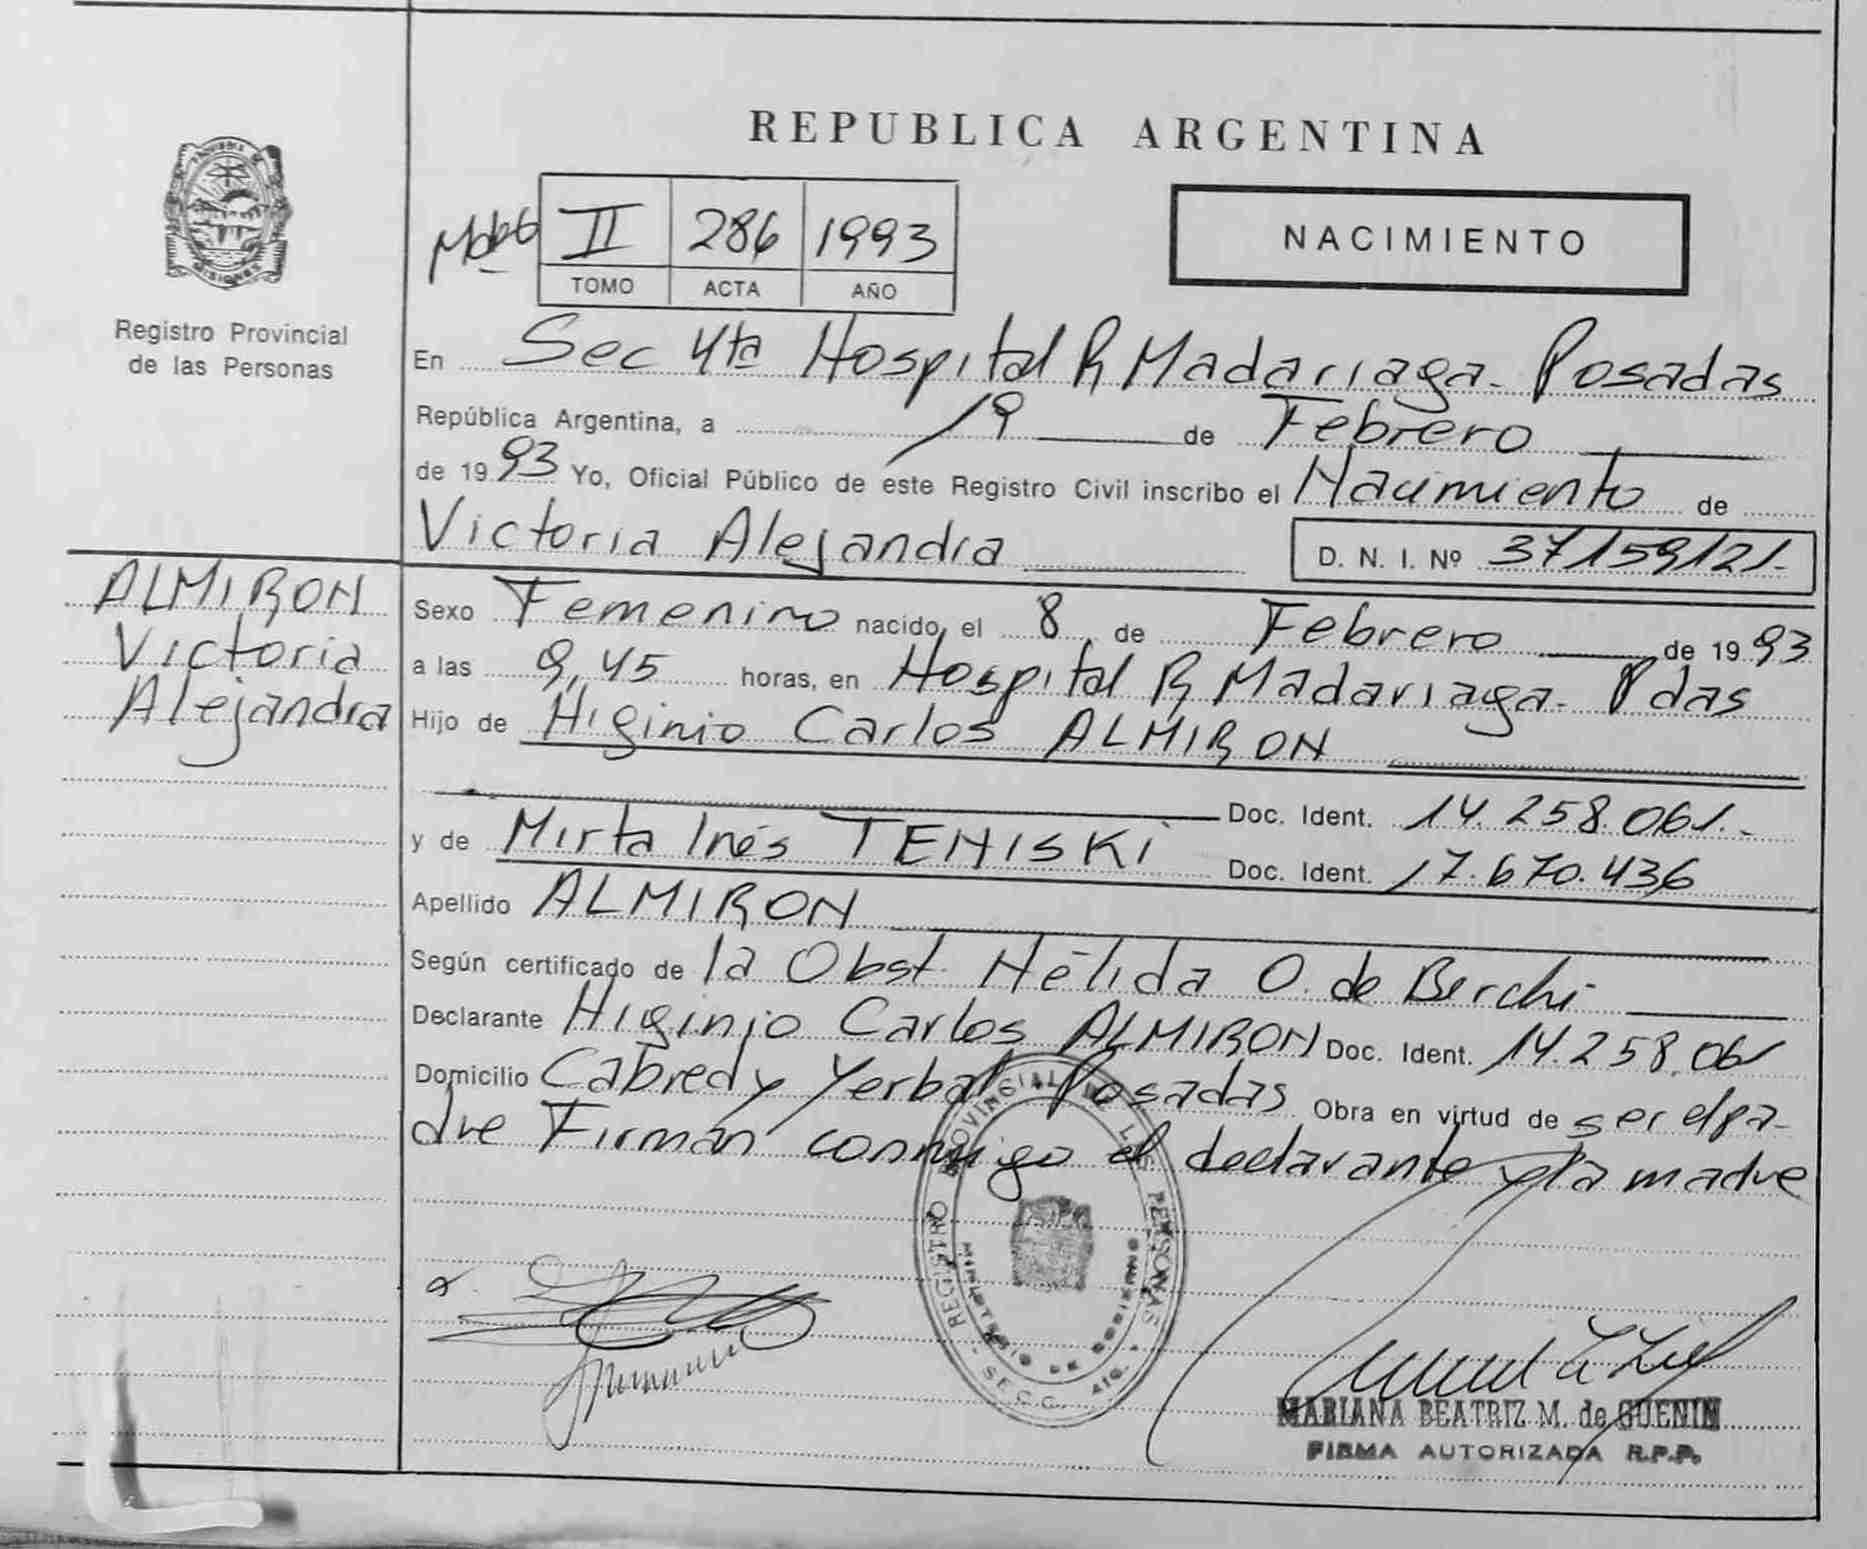 REPUBLICA ARGENTINA
PROVINCIA DE MISIONES
Registro Provincial
de las Personas
II 286 1993
TOMO ACTA AÑO
NACIMIENTO
En Sec 4ta Hospital R Madariaga - Posadas
República Argentina, a 19 de Febrero
de 1993 Yo, Oficial Público de este Registro Civil inscribo el Nacimiento de
Victoria Alejandra D. N. I. Nº 37159121.-
ALMIRON
Victoria
Alejandra
Sexo Femenino nacido el 8 de Febrero de 1993
a las 9,45 horas, en Hospital R Madariaga - Pdas
Hijo de Higinio Carlos ALMIRON
Doc. Ident. 14.258.061.-
y de Mirta Inés TENISKI Doc. Ident. 17.670.436
Apellido ALMIRON
Según certificado de la Obst. Nélida O. de Berchi
Declarante Higinio Carlos ALMIRON Doc. Ident. 14.258.061
Domicilio Cabred y Yerbal Posadas Obra en virtud de ser el pa-
dre Firman conmigo el declarante y la madre
REGISTRO PROVINCIAL DE LAS PERSONAS
MINISTERIO DE GOBIERNO
SECC. 4ta.
MARIANA BEATRIZ M. de GUENIN
FIRMA AUTORIZADA R.P.P.